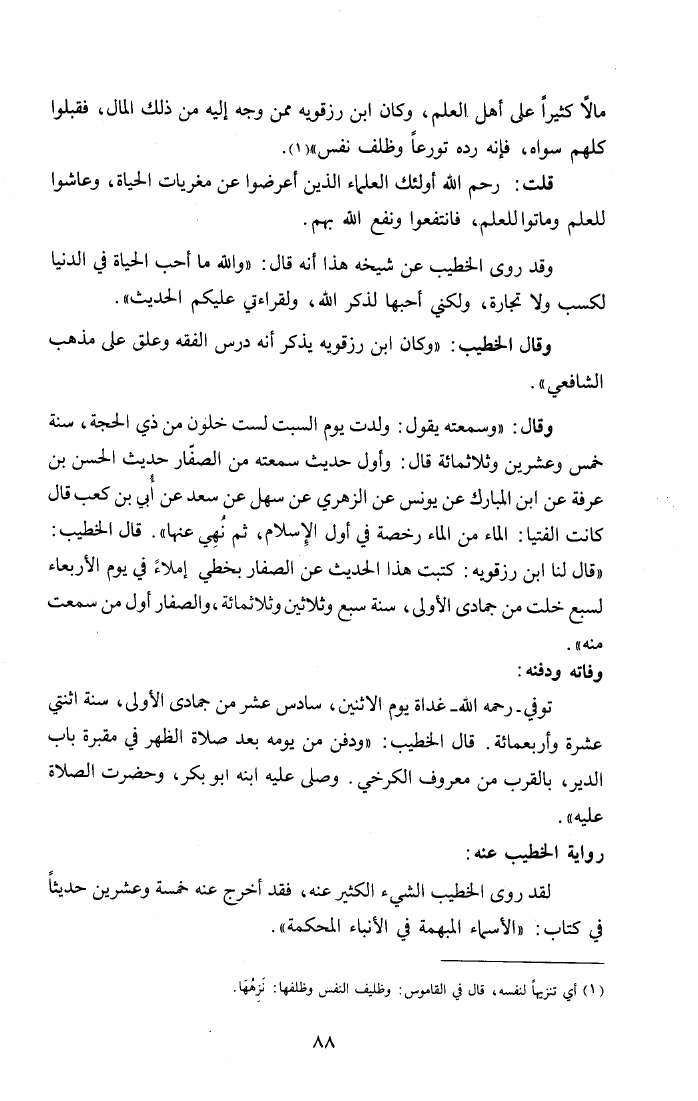 مالًا كثيراً على أهل العلم، وكان ابن رزقويه ممن وجه إليه من ذلك المال، فقبلوا
كلهم سواه، فإنه رده تورعاً وظلف نفس»(١).
قلت: رحم الله أولئك العلماء الذين أعرضوا عن مغريات الحياة، وعاشوا
للعلم وماتوا للعلم، فانتفعوا ونفع الله بهم.
وقد روى الخطيب عن شيخه هذا أنه قال: «والله ما أحب الحياة في الدنيا
لكسب ولا تجارة، ولكني أحبها لذكر الله، ولقراءتي عليكم الحديث».
وقال الخطيب: «وكان ابن رزقويه يذكر أنه درس الفقه وعلق على مذهب
الشافعي».
وقال: «وسمعته يقول: ولدت يوم السبت لست خلون من ذي الحجة، سنة
خمس وعشرين وثلاثمائة قال: وأول حديث سمعته من الصفّار حديث الحسن بن
عرفة عن ابن المبارك عن يونس عن الزهري عن سهل عن سعد عن أُبي بن كعب قال
كانت الفتيا: الماء من الماء رخصة في أول الإسلام، ثم نُهِي عنها». قال الخطيب:
«قال لنا ابن رزقويه: كتبت هذا الحديث عن الصفار بخطي إملاءً في يوم الأربعاء
لسبع خلت من جمادى الأولى، سنة سبع وثلاثين وثلاثمائة، والصفار أول من سمعت
منه».
وفاته ودفنه:
توفي ـ رحمه الله ـ غداة يوم الاثنين، سادس عشر من جمادى الأولى، سنة اثنتي
عشرة وأربعمائة. قال الخطيب: «ودفن من يومه بعد صلاة الظهر في مقبرة باب
الدير، بالقرب من معروف الكرخي. وصلى عليه ابنه ابو بكر، وحضرت الصلاة
عليه».
رواية الخطيب عنه:
لقد روى الخطيب الشيء الكثير عنه، فقد أخرج عنه خمسة وعشرين حديثاً
في كتاب: «الأسماء المبهمة في الأنباء المحكمة».
(١) أي تنزيهاً لنفسه، قال في القاموس: وظليف النفس وظلفها: نَزِهُهَا.
٨٨